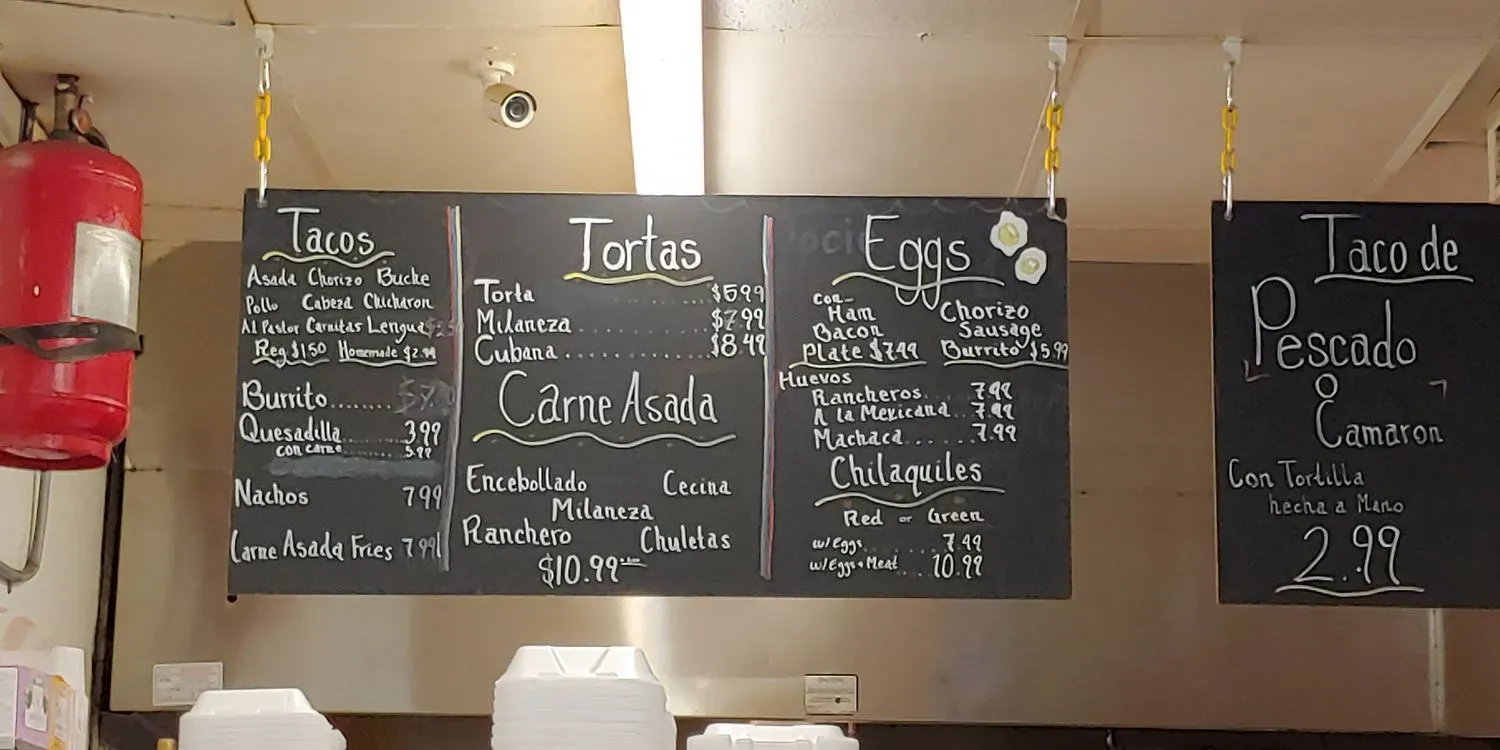 Tacos
Asada Chorizo Buche
Pollo Cabeza Chicharon
Al Pastor Carnitas Lengua
Reg $1.50 Homemade $2.99
Burrito........
Quesadilla....... 3.99
con carne....... 5.99
Nachos 7.99
Carne Asada Fries 7.99
Tortas
Torta ........ $5.99
Milaneza ............. $7.99
Cubana ............. $8.49
Carne Asada
Encebollado Cecina
Milaneza
Ranchero Chuletas
$10.99
Eggs
con-
Ham Chorizo
Bacon Sausage
Plate $7.49 Burrito $5.99
Huevos
Rancheros... 7.99
A la Mexicana.. 7.99
Machaca....... 7.99
Chilaquiles
Red or Green
w/Eggs........ 7.49
w/Eggs+Meat.... 10.99
Taco de
Pescado
o
Camaron
Con Tortilla
hecha a Mano
2.99